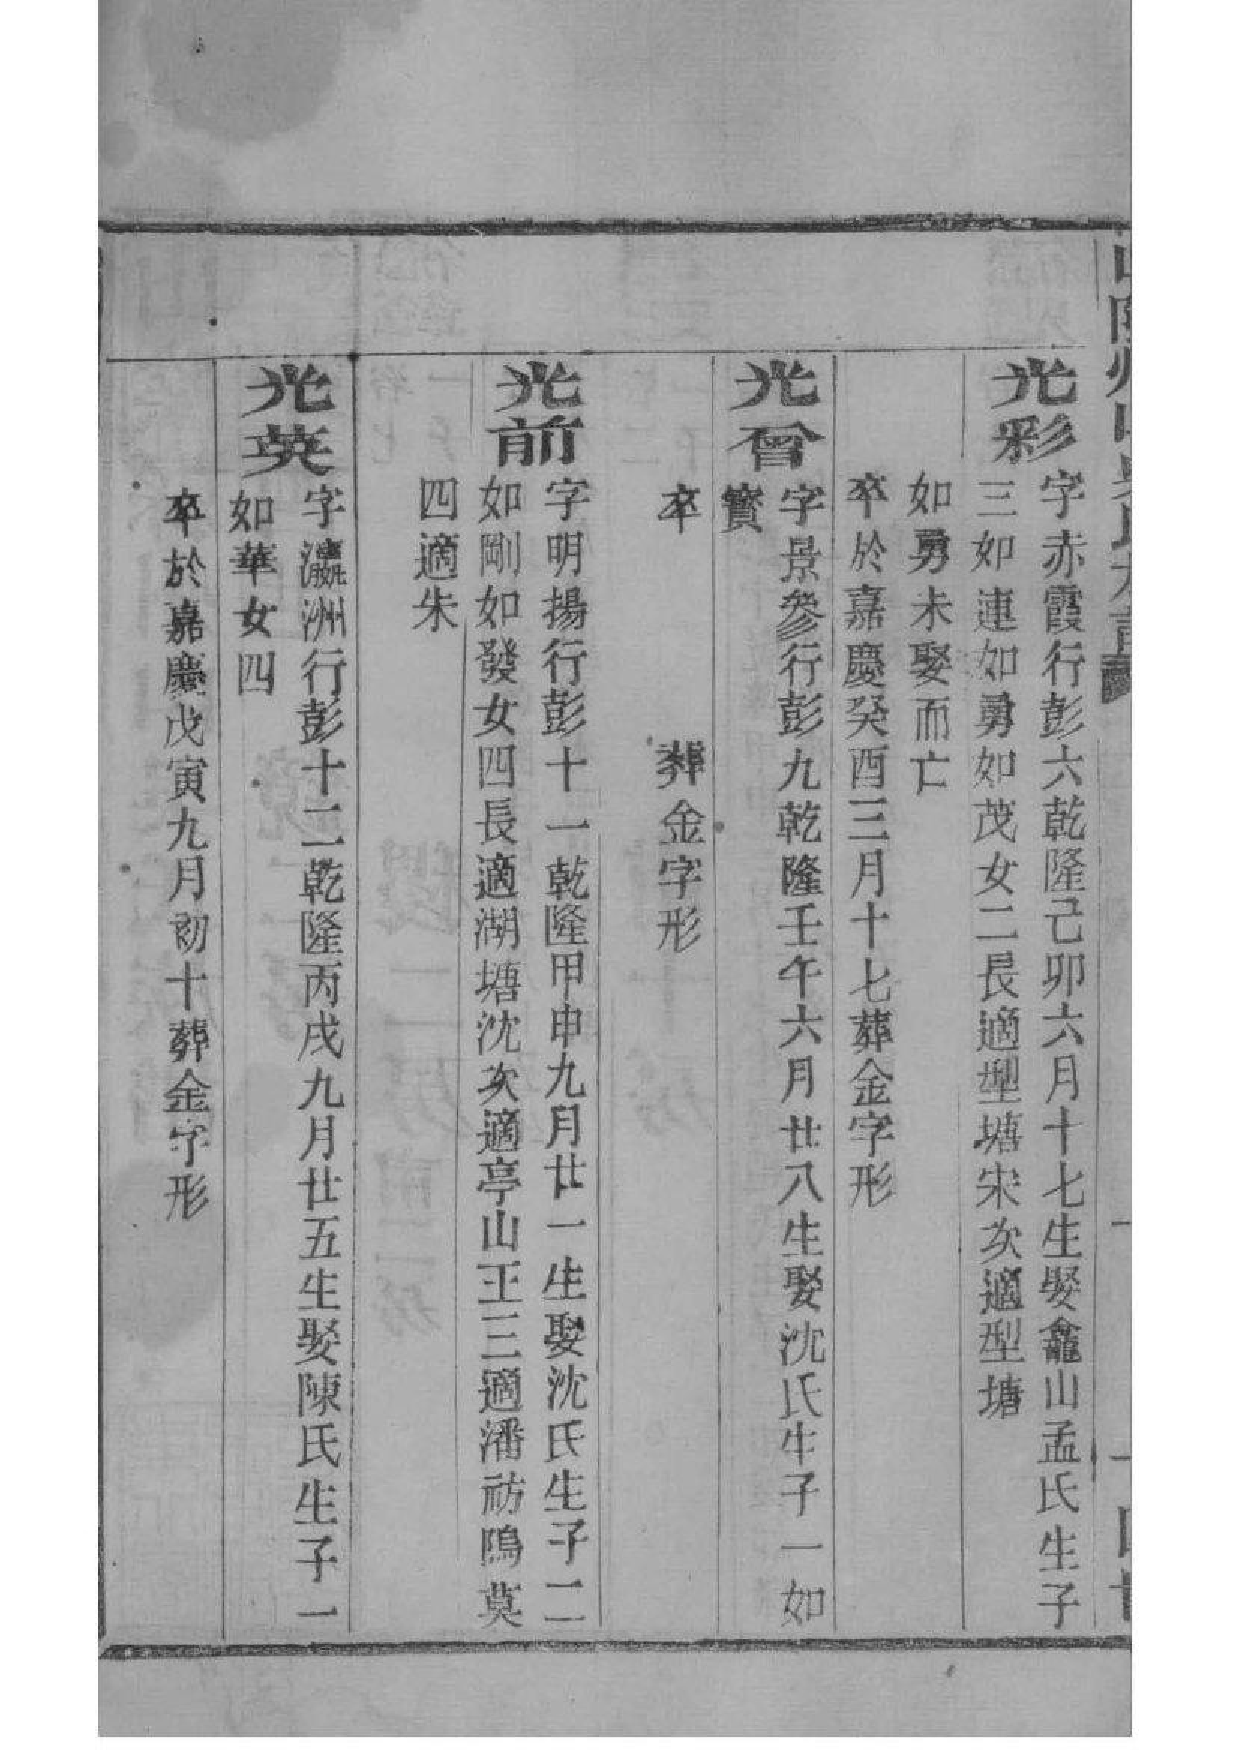 光彩
字赤霞行彭六乾隆己卯六月十七生娶龕山孟氏生子
三如連如勇如茂女二長適型塘宋次適型塘
如勇未娶而亡
卒於嘉慶癸酉三月十七葬金字形
光曾
字景參行彭九乾隆壬午六月廿八生娶沈氏生子一如
賓
卒 葬金字形
光前
字明揚行彭十一乾隆甲申九月廿一生娶沈氏生子二
如剛如發女四長適湖塘沈次適亭山王三適潘舫隖莫
四適朱
光英
字瀛洲行彭十二乾隆丙戌九月廿五生娶陳氏生子一
如華女四
卒於嘉慶戊寅九月初十葬金字形